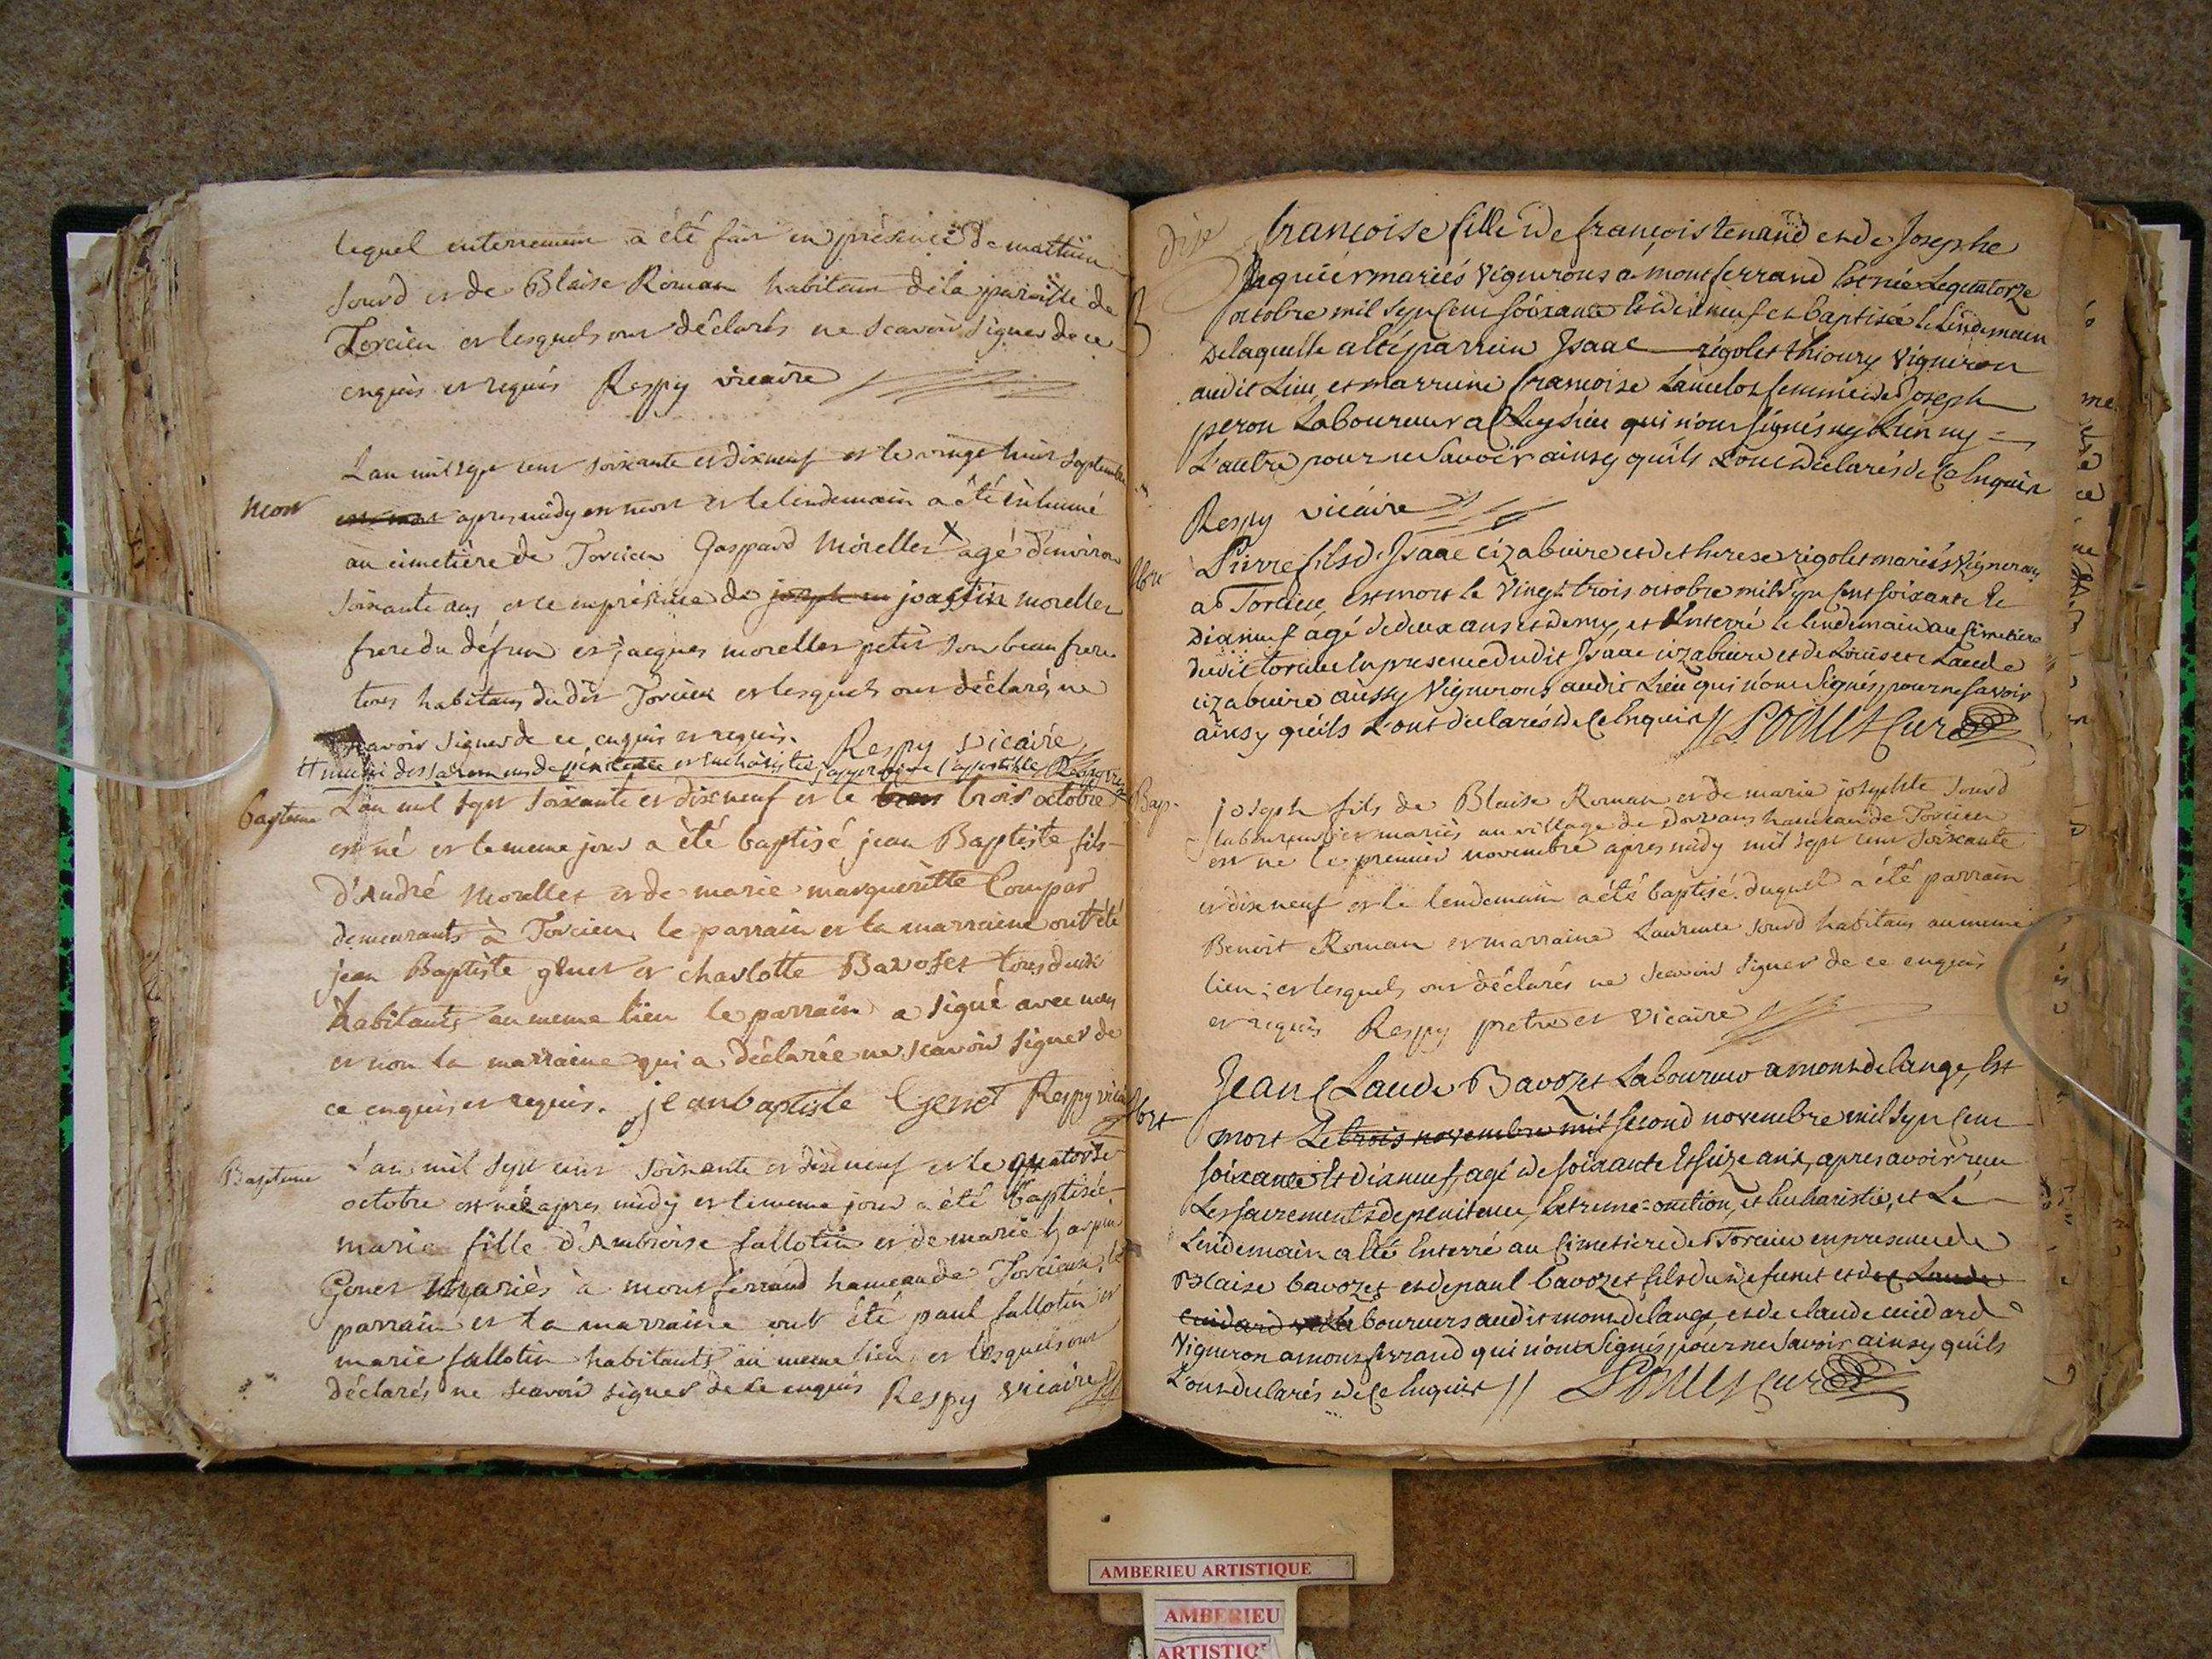 lequel enterrement a été fait en présence de mathieu
sourd et de Blaise Roman habitans de la paroisse de
Torcieu et lesquels ont déclarés ne scavoir signer de ce
enquis et requis Respy vicaire
mort
L'an mil sept cent soixante et dixneuf et le vingt huit septembre
est mort apres midy est mort et le lendemain a été inhumé
au cimetière de Torcieu Gaspard Morellet agé d'environ
soixante ans et ce en présence de joseph joachin morellet
frere du défunt et jacques morellet petit son beau frere
tous habitans du dit Torcieu et lesquels ont déclaré ne
scavoir signer de ce enquis et requis. Respy vicaire
muni des sacremens de pénitence et euchâristie j'approuve l'apostille Respy
bapteme
L'an mil sept soixante et dixneuf et le trois octobre
est né et le meme jour a été baptisé jean Baptiste fils
d'André Morellet et de marie margueritte Compar
demeurants à Torcieu, le parrain et la marraine ont été
jean Baptiste genet et charlotte Bavoset tous deux
habitants au meme lieu le parrain a signé avec nous
et non la marraine qui a déclarée ne scavoir signer de
ce enquis et requis. jean baptiste Genet Respy vicaire
Bapteme
L'an mil sept cent soixante et dixneuf et le quatorze
octobre est née apres midy et le meme jour a été baptisée
marie fille d'Ambroise fallotin et de marie
Genet mariès à montferrand hameau de Torcieu, le
parrain et la marraine ont été paul fallotin et
marie fallotin habitants au meme lieu et lesquels ont
déclarés ne scavoir signer de ce enquis Respy vicaire
françoise fille de françois tenand et de Josephe
mariés vignerons a montferrand Est née Le quatorze
octobre mil sept Cent soixante Et dixneuf et baptisée le Lendemain
De laquelle a été parrein Isaac rigolet thioury vigneron
audit Lieu et marreine françoise Lancelot femme de Joseph
peron Laboureur a Cleysieu qui n'ont signés ny L'un ny
L'autre pour ne Savoir ainsy quils L'ont declarés de Ce Enquis
Respy vicaire
Mort
Pierre fils d'Isaac cizabuire et de therese rigolet mariés Vignerons
a Torcieu, est mort le Vingt trois octobre mil Sept Cent soixante Et
Dixneuf agé de deux ans et demy, et Enterré le lendemain au Cimetiere
dudit torcieu En presence dudit Isaac cizabuire et de Louis et Claude
cizabuire aussy Vignerons audit Lieu qui n'ont Signés, pour ne Savoir
ainsy quils L'ont declarés de Ce Enquis // Curé
Bap.
joseph fils de Blaise Roman et de marie josephte sourd
laboureurs et mariès au village de Dorvans hameau de Torcieu
est né le premier novembre apres midy mil sept cent soixante
et dixneuf et le lendemain a été baptisé. duquel a été parrain
Benoit Roman et marraine Laurence sourd habitans au meme
lieu; et lesquels ont déclarés ne scavoir signer de ce enquis
et requis Respy pretre et vicaire
Mort
Jean Claude Bavozet Laboureur a mont de lange, Est
mort Le trois novembre mil second novembre mil Sept Cent
soixante Et dixneuf, agé de soixante Et seize ans, apres avoir reçu
Les sacrements de penitence, Extreme=onction, et Eucharistie, et Le
Lendemain a été Enterré au Cimetiere de Torcieu en presence de
Blaise bavozet et de paul bavozet fils du defunt et de Claude
cuidard Laboureurs audit mont de lange, et de claude cuidard
Vigneron a montferrand qui n'ont Signés pour ne Savoir ainsy quils
L'ont declarés de Ce Enquis // Curé
AMBERIEU ARTISTIQUE
AMBERIEU
ARTISTIQUE